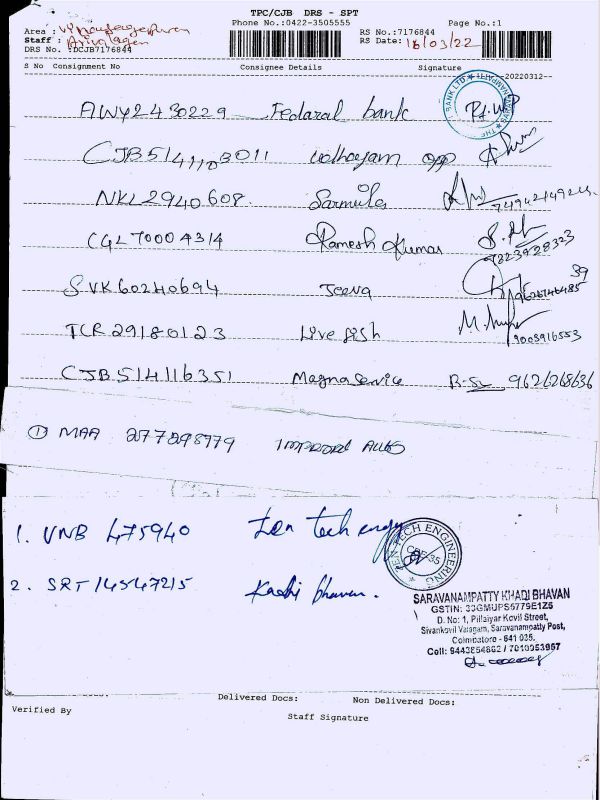 TPC/CJB DRS - SPT
Phone No.:0422-3505555 Page No.:1
Area :
Staff :
DRS No. :DCJB7176844
RS No.:7176844
RS Date: 16/03/22
--20220312--
S No Consignment No Consignee Details Signature
AWY2430229 Fedaral bank
CJB514110 3011 udhayam opp
NKL2940608. Sarmila
CGL70004314 Ramesh Kumar
SVK60240694 Jeeva
TCR29180123 Live fish 9003916553
CJB514116351 Magnaservice 9626268636
① MAA 277298779 Auto
1. VNB 475940 Zen tech engg
ZEN TECH ENGINEERING
CBE-35
2. SRT14547215 Kadhi bhavan.
SARAVANAMPATTY KHADI BHAVAN
GSTIN: 33GMUPS6779E1Z6
D. No: 1, Pillaiyar Kovil Street,
Sivankovil Valagam, Saravanampatty Post,
Coimbatore - 641 035.
Cell: 9443854862 / 7010953957
Delivered Docs: Non Delivered Docs:
Verified By
Staff Signature